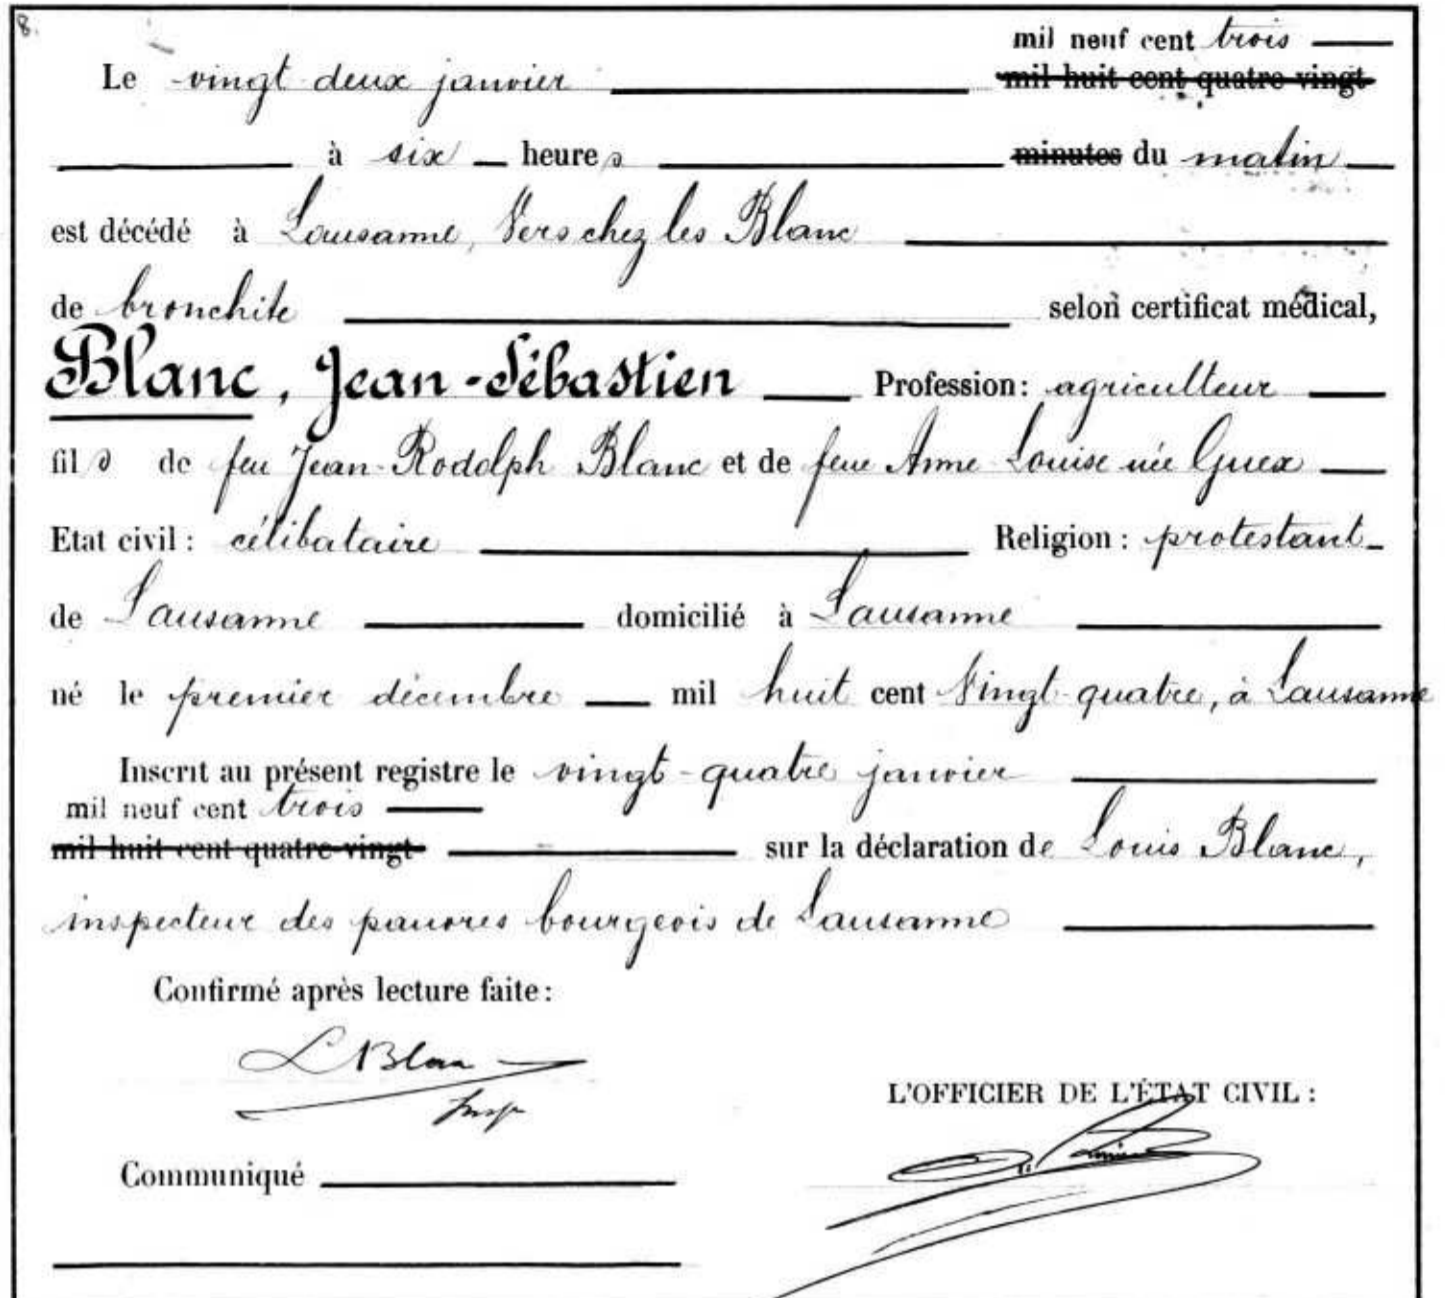 8.
mil neuf cent trois
Le vingt deux janvier mil huit cent quatre-vingt
à six heures minutes du matin
est décédé à Lausanne, Vers chez les Blanc
de bronchite selon certificat médical,
Blanc, Jean-Sébastien Profession: agriculteur
fils de feu Jean-Rodolph Blanc et de feue Anne Louise née Guex
Etat civil: célibataire Religion: protestant
de Lausanne domicilié à Lausanne
né le premier décembre mil huit cent Vingt-quatre, à Lausanne
Inscrit au présent registre le vingt-quatre janvier
mil neuf cent trois
mil huit cent quatre-vingt sur la déclaration de Louis Blanc,
inspecteur des pauvres bourgeois de Lausanne
Confirmé après lecture faite:
L Blanc
Insp
L'OFFICIER DE L'ÉTAT CIVIL:
Communiqué